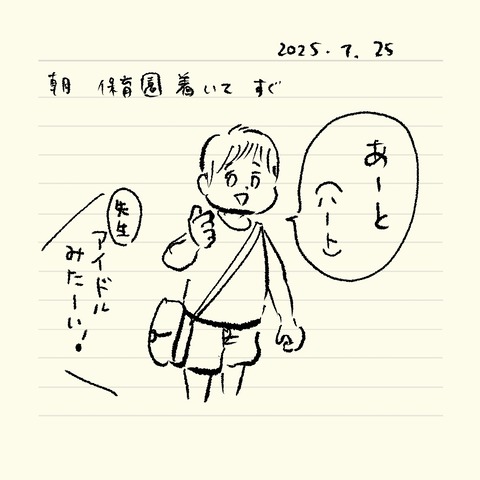 2025.7.25
朝 保育園着いて すぐ
あーと
(ハート)
先生
アイドル
みたーい!